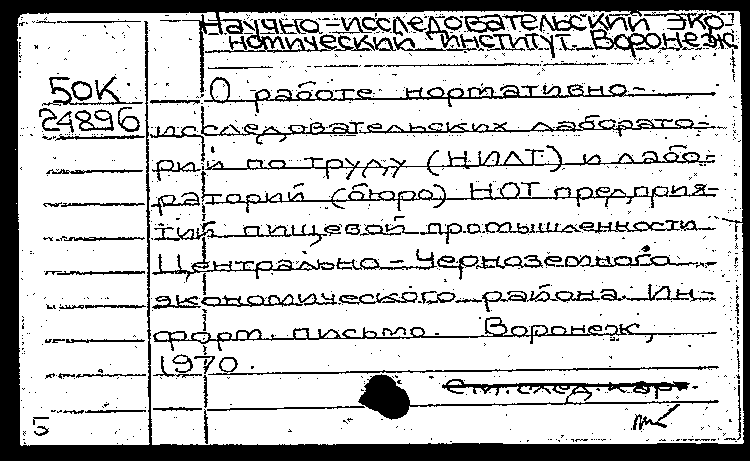 Научно-исследовательский эко-
номический институт. Воронеж
50К
24896
О работе нормативно-
исследовательских лаборато-
рий по труду (НИЛТ) и лабо-
раторий (бюро) НОТ предприя-
тий пищевой промышленности
Центрально-Черноземного
экономического района. Ин-
форм. письмо. Воронеж,
1970.
См. след. карт.
5